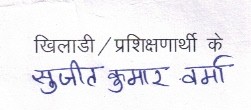 खिलाडी / प्रशिक्षणार्थी के
सुजीत कुमार वर्मा